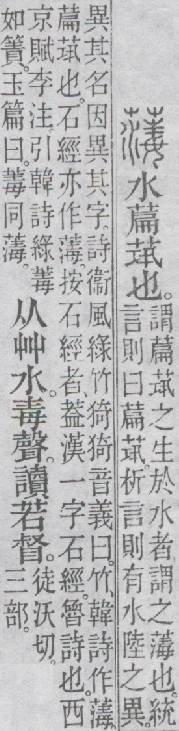 𦼮水萹茿也。
謂萹茿之生於水者。謂之𦼮也。統
言則曰萹茿。析言則有水陸之異。
異其名因異其字。詩衞風綠竹猗猗。音義曰。竹、韓詩作𦼮。
萹茿也。石經亦作𦼮。按石經者、葢漢一字石經。魯詩也。西
京賦李注引韓詩綠䓯
如簀。玉篇曰。䓯同𦼮。
从艸水。毒聲。讀若督。
徒沃切。
三部。